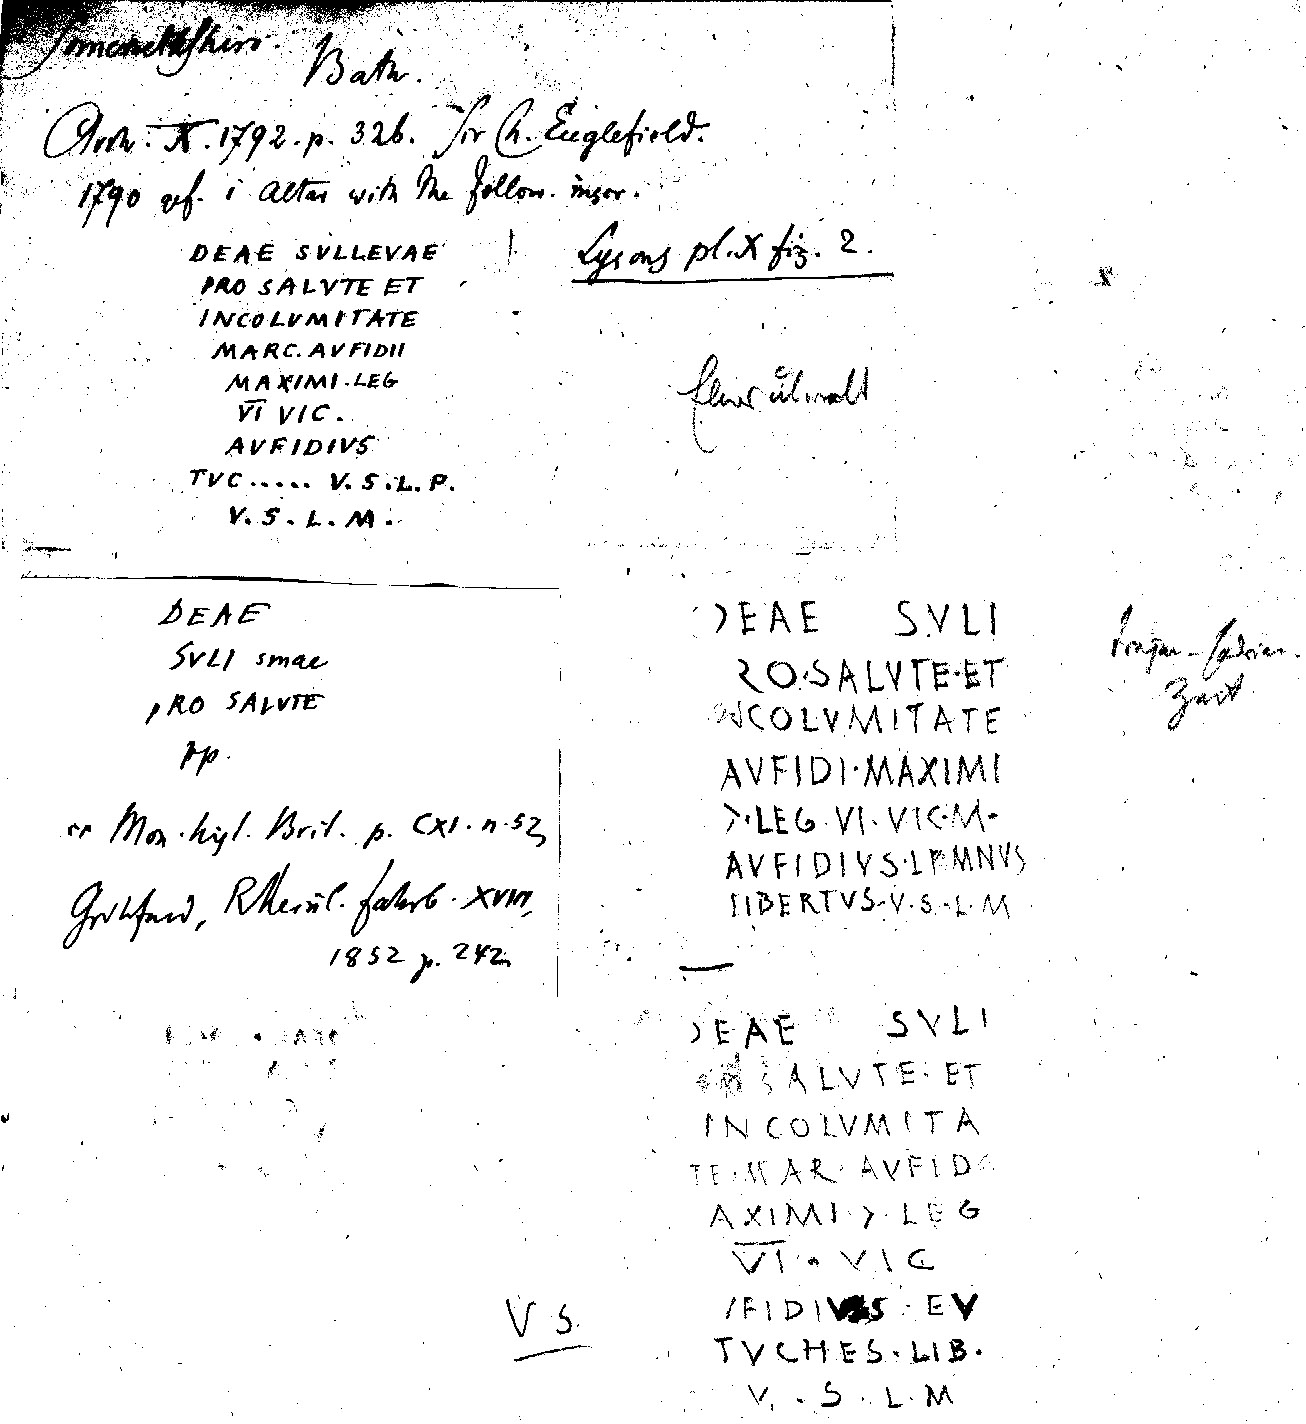 Somersetshire.
Bath.
Arch. X. 1792. p. 326. Sir H. Englefield.
1790 gef. 1 altar with the follow. inscr.
DEAE SVLLEVAE
PRO SALVTE ET
INCOLVMITATE
MARC. AVFIDII
MAXIMI. LEG
VI VIC.
AVFIDIVS
TVC..... V. S. L. P.
V. S. L. M.
Lysons pl. X fig. 2.
DEAE
SVLI smae
PRO SALVTE
pp.
Mon. hist. Brit. p. CXI. n. 52,
Grotefend, Rheinl. Jahrb. XVIII,
1852 p. 242
DEAE SVLI
RO·SALVTE·ET
INCOLVMITATE
AVFIDI·MAXIMI
>·LEG·VI·VIC·M·
AVFIDIVS·LEMNVS
LIBERTVS·V·S·L·M
DEAE SVLI
SALVTE·ET
INCOLVMITA
TE·MAR·AVFID
AXIMI·>·LEG
VI·VIC
FIDIVS·EV
TVCHES·LIB·
V·S·L·M
VS.